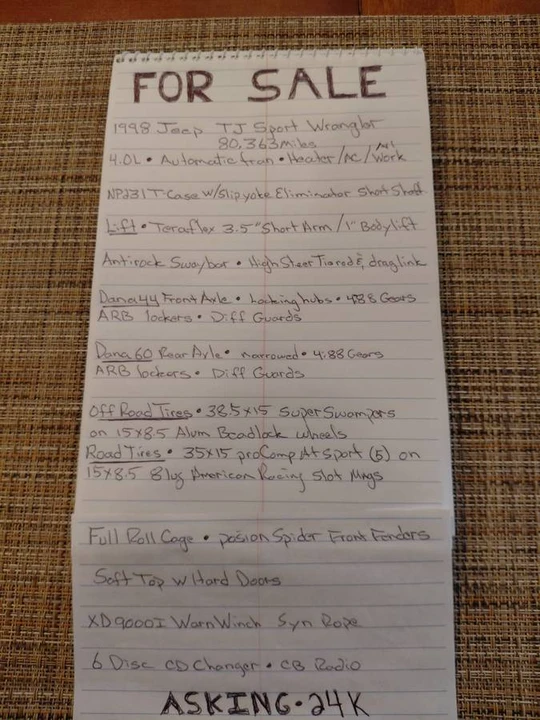 FOR SALE
1998 Jeep TJ Sport Wrangler
80,363 miles
4.0L • Automatic tran • Heater/AC/All Work
NP231 T-Case w/Slipyoke Eliminator Short Shaft
Lift • Teraflex 3.5" Short Arm / 1" Body lift
Antirock Swaybar • High Steer Tierod & draglink
Dana 44 Front Axle • Locking hubs • 488 Gears
ARB lockers • Diff Guards
Dana 60 Rear Axle • narrowed • 4:88 Gears
ARB lockers • Diff Guards
Off Road Tires • 38.5x15 Super Swampers
on 15x8.5 Alum Beadlock wheels
Road Tires • 35x15 proComp At Sport (5) on
15x8.5 8lug American Racing Slot Mags
Full Roll Cage • posion Spider Front Fenders
Soft Top w/Hard Doors
XD9000I Warn Winch Syn Rope
6 Disc CD Changer • CB Radio
ASKING • 24K